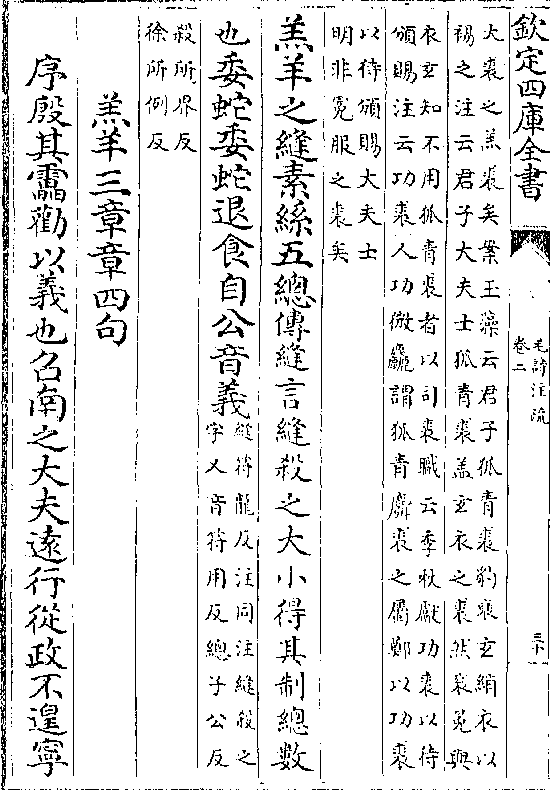 欽定四庫全書
毛詩注疏
卷二
三十
大裘之羔裘矣案玉藻云君子狐青裘豹褎玄綃衣以
裼之注云君子大夫士狐青裘蓋玄衣之裘然裘冕與
衣玄知不用狐青裘者以司裘職云季秋獻功裘以待
頒賜注云功裘人功微麤謂狐青麛裘之屬鄭以功裘
以待頒賜大夫士
明非冕服之裘矣
羔羊之縫素絲五總傳縫言縫殺之大小得其制總數
也委蛇委蛇退食自公音義
縫符龍反注同注縫殺之
字又音符用反總子公反
殺所界反
徐所例反
羔羊三章章四句
序殷其靁勸以義也召南之大夫遠行從政不遑寧